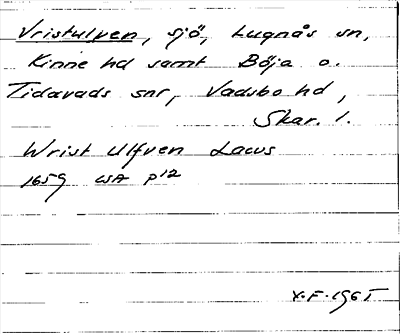 Vristulven, sjö, Lugnås sn,
Kinne hd samt Böja o.
Tidavads snr, Vadsbo hd,
Skar. l.
Wrist Ulfven Lacus
1659 LSA p12
X.F. 1965